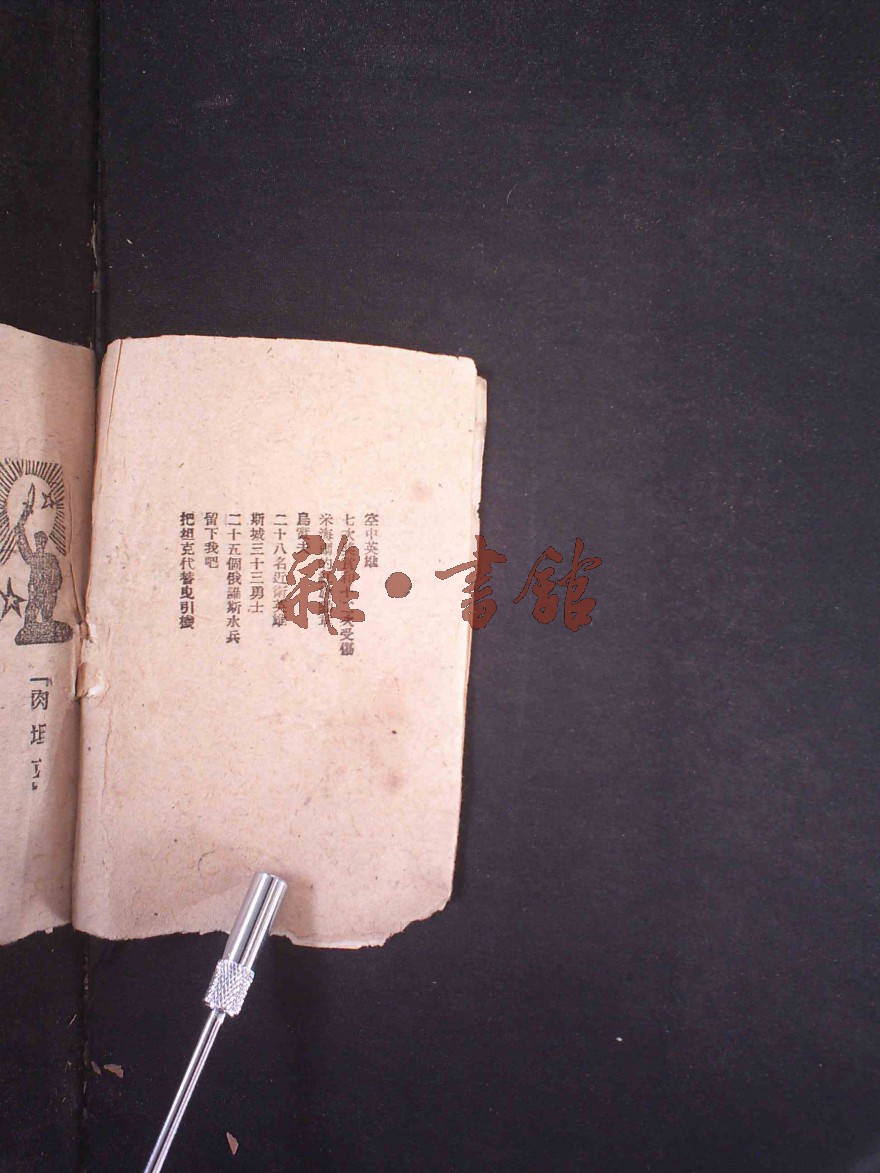 空中英雄
七次 受傷
米海
烏
二十八名近衛英雄
斯城三十三勇士
二十五個俄羅斯水兵
留下我吧
把坦克代替曳引機
「肉坦克」
雜·書館